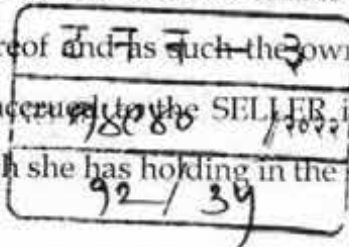 reof and as such the own
ट न न - ३
accrued to the SELLER i
/२०२२
h she has holding in the
१२ / ३५